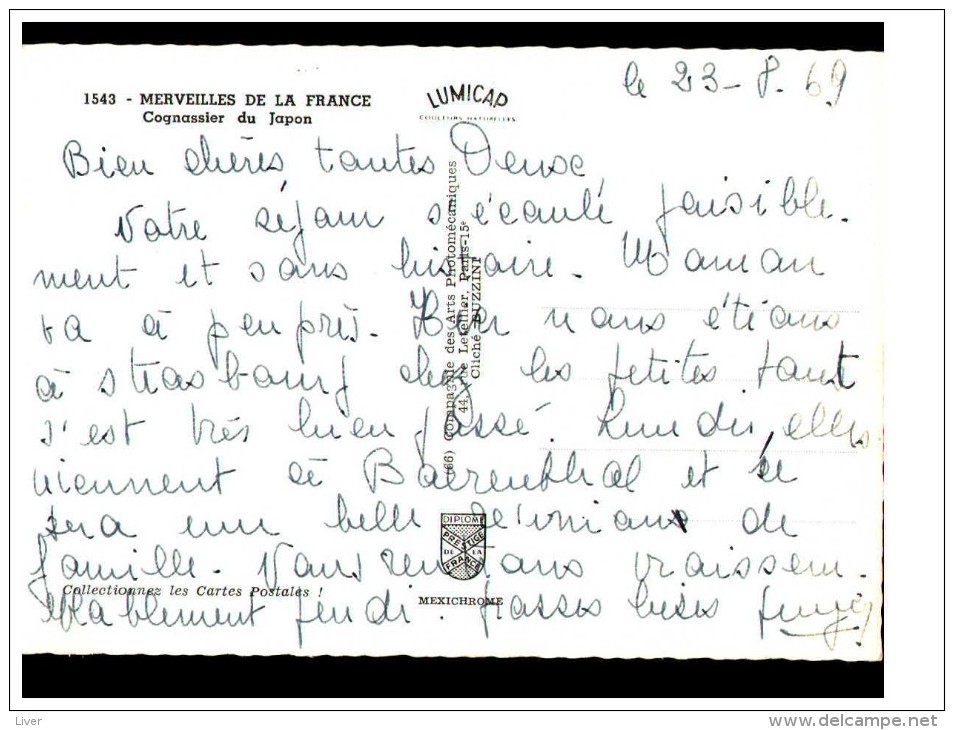 le 23-8.69
1543 - MERVEILLES DE LA FRANCE
Cognassier du Japon
LUMICAP
COULEURS NATURELLES
Bien chères tantes
Notre séjour s'écoule paisible-
ment et sans histoire. Maman
va à peu près. Hier nous étions
à Strasbourg chez les petites tout
s'est très bien passé. Lundi, elles
viennent à Baerenthal et se
sera une belle réunion de
famille. Nous rentrons vraissem-
blablement jeudi. Grosses bises
(66) Compagnie des Arts Photomécaniques
44, Rue Letellier, Paris-15e
Cliché BUZZINI
DIPLOME
PRESTIGE
DE LA
FRANCE
Collectionnez les Cartes Postales !
MEXICHROME
Liver
www.delcampe.net